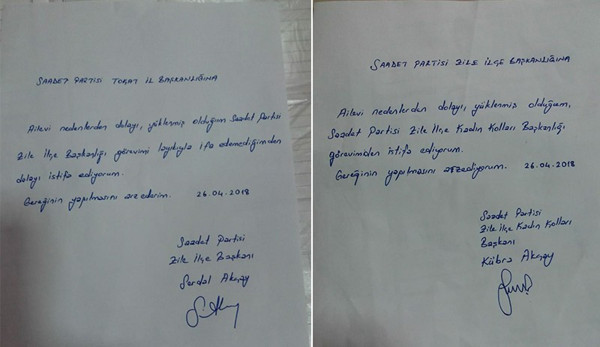 SAADET PARTİSİ TOKAT İL BAŞKANLIĞINA
Ailevi nedenlerden dolayı, yüklenmiş olduğum Saadet Partisi
Zile İlçe Başkanlığı görevimi layıkıyla ifa edemediğimden
dolayı istifa ediyorum.
Gereğinin yapılmasını arz ederim. 26.04.2018
Saadet Partisi
Zile İlçe Başkanı
Serdal Akçay
SAADET PARTİSİ ZİLE İLÇE BAŞKANLIĞINA
Ailevi nedenlerden dolayı, yüklenmiş olduğum,
Saadet Partisi Zile İlçe Kadın Kolları Başkanlığı
görevimden istifa ediyorum.
Gereğinin yapılmasını arzediyorum. 26.04.2018
Saadet Partisi
Zile İlçe Kadın Kolları
Başkanı
Kübra Akçay